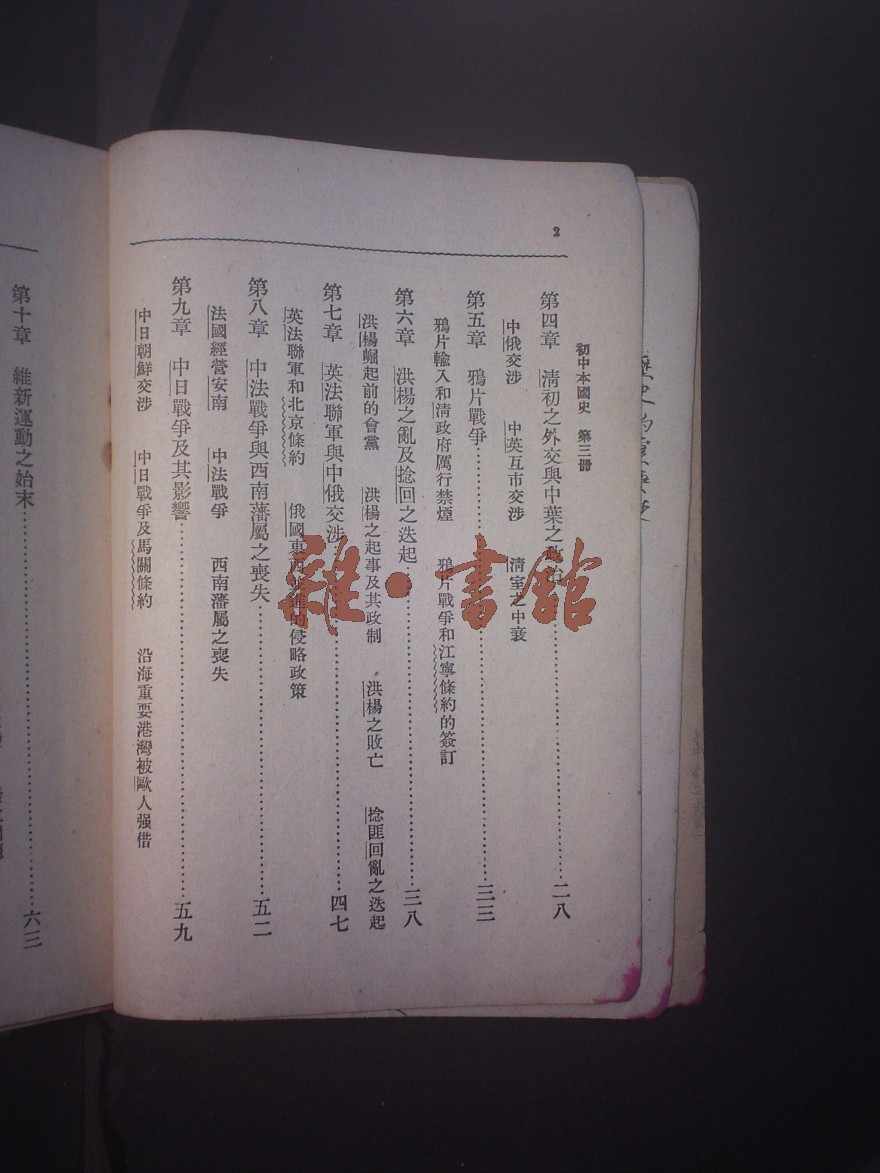 2
初中本國史　第三冊
第四章　清初之外交與中葉之政治……二八
中俄交涉　中英互市交涉　清室之中衰
第五章　鴉片戰爭……三三
鴉片輸入和清政府厲行禁煙　鴉片戰爭和江寧條約的簽訂
第六章　洪楊之亂及捻回之迭起……三八
洪楊崛起前的會黨　洪楊之起事及其政制　洪楊之敗亡　捻匪回亂之迭起
第七章　英法聯軍與中俄交涉……四七
英法聯軍和北京條約　俄國東西並進的侵略政策
第八章　中法戰爭與西南藩屬之喪失……五二
法國經營安南　中法戰爭　西南藩屬之喪失
第九章　中日戰爭及其影響……五九
中日朝鮮交涉　中日戰爭及馬關條約　沿海重要港灣被歐人强借
第十章　維新運動之始末……六三
雜·書館